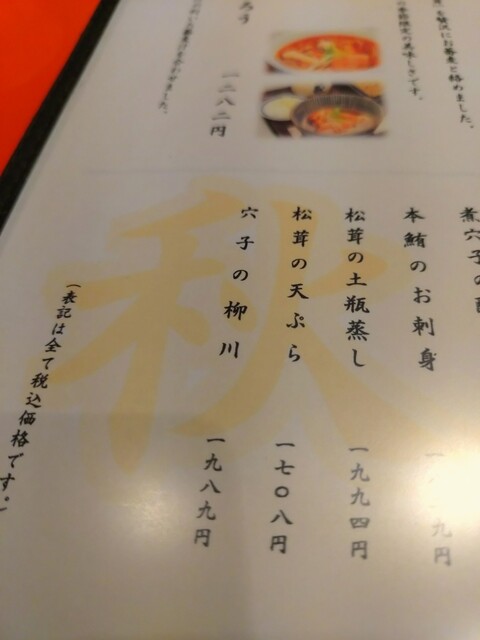 贅沢にお蕎麦と絡めました。
の季節限定の美味しさです。
一二八二円
煮穴子の
本鮪のお刺身
松茸の土瓶蒸し
一九九四円
松茸の天ぷら
一七〇八円
穴子の柳川
一九八九円
(表記は全て税込価格です。)
秋